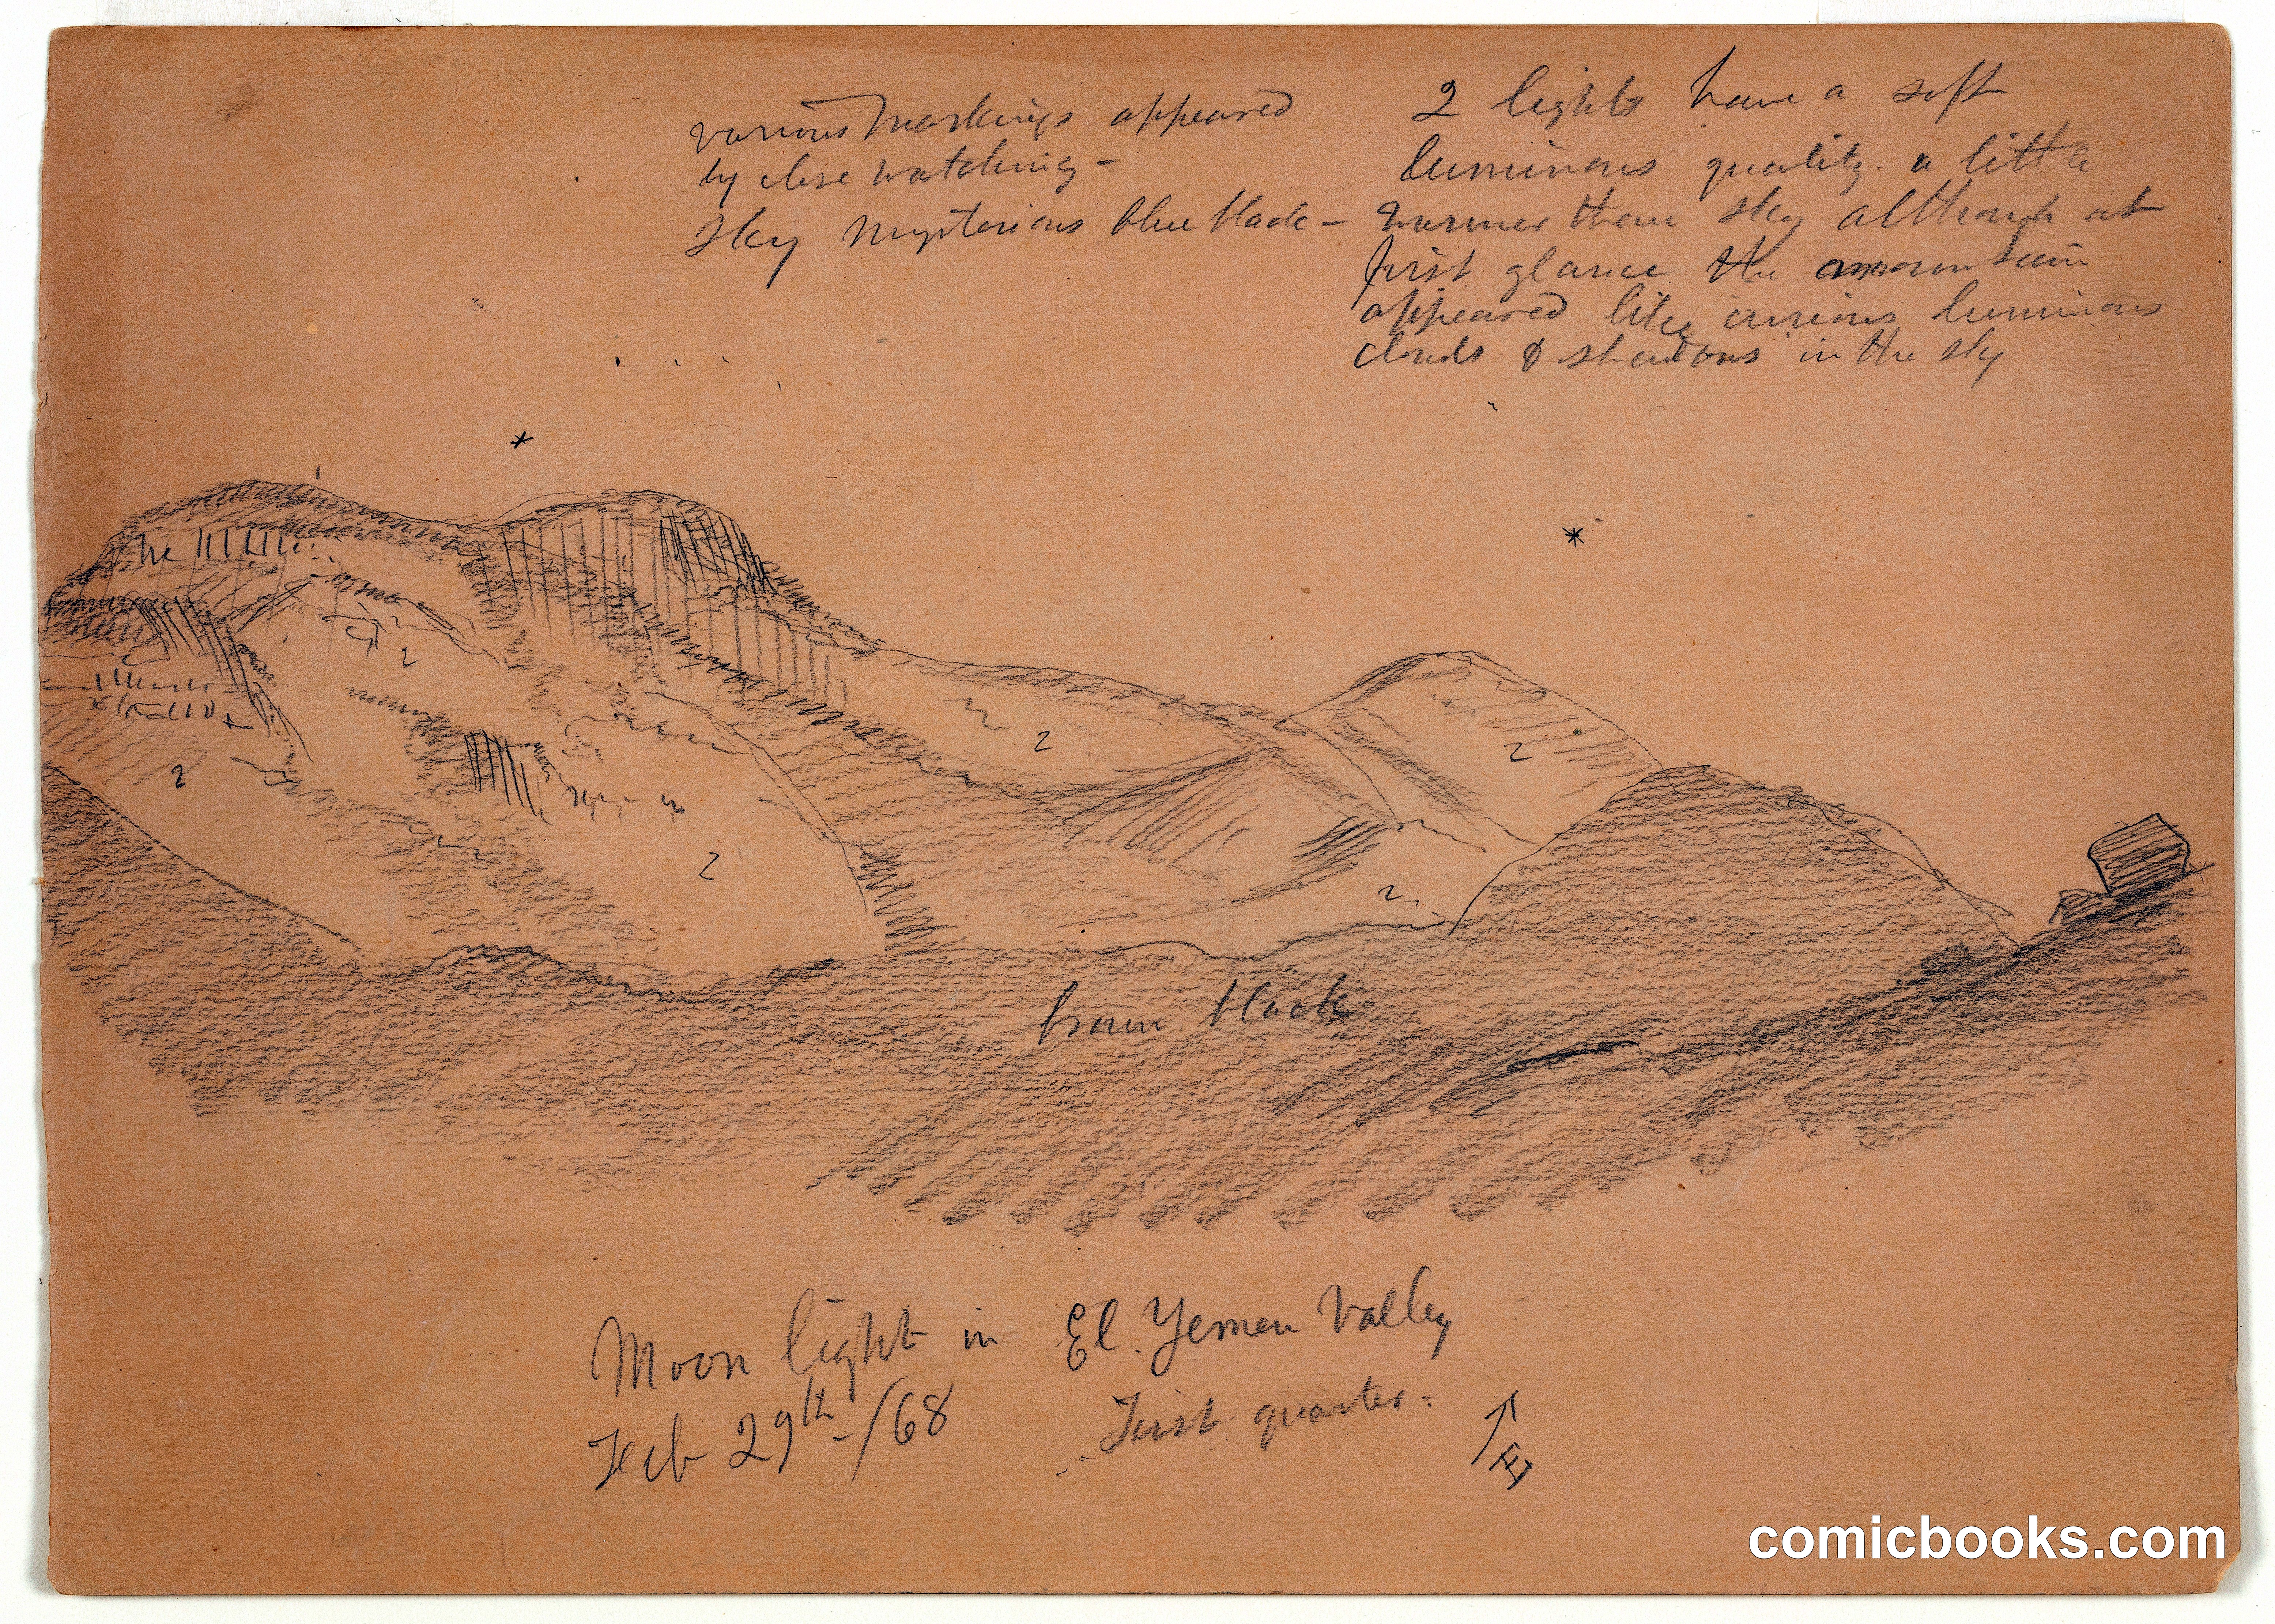 various markings appeared
by close watching -
sky mysterious blue black -
2 lights have a soft
luminous quality. a little
warmer than sky although at
first glance the mountain
appeared like curious luminous
clouds & shadows in the sky
2
2
2
2
2
2
brown black
Moon light in El Yemen Valley
Feb 29th /68 First quarter.
E
comicbooks.com